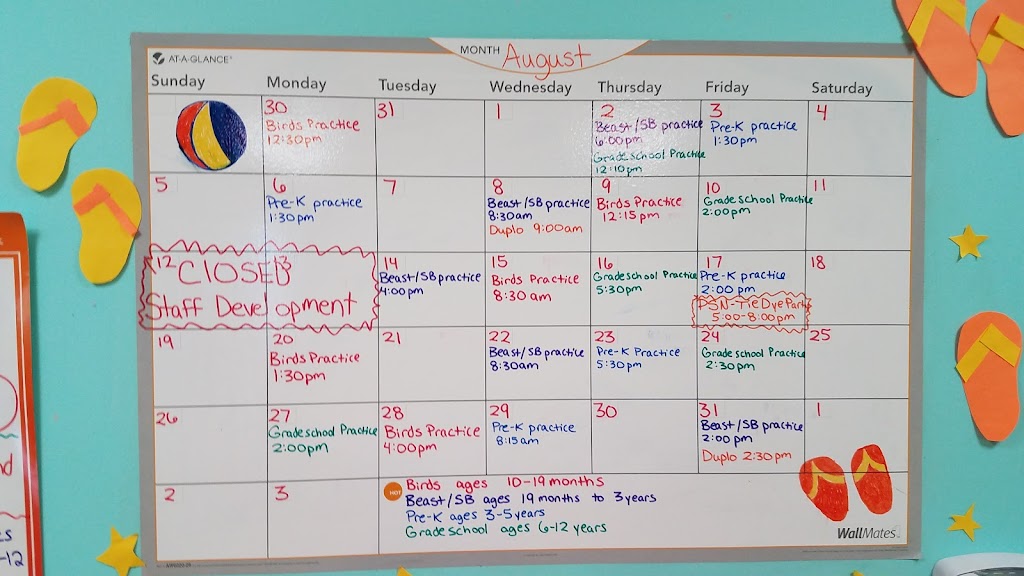 AT-A-GLANCE
MONTH August
Sunday Monday Tuesday Wednesday Thursday Friday Saturday
30
Birds Practice
12:30pm
31
1
2
Beast/SB practice
6:00pm
Gradeschool Practice
12:10pm
3
Pre-K practice
1:30pm
4
5
6
Pre-K practice
1:30pm
7
8
Beast/SB practice
8:30am
Duplo 9:00am
9
Birds Practice
12:15pm
10
Gradeschool Practice
2:00pm
11
12
13
CLOSED
Staff Development
14
Beast/SB practice
4:00pm
15
Birds Practice
8:30am
16
Gradeschool Practice
5:30pm
17
Pre-K practice
2:00pm
PSN-Tie Dye Party
5:00-8:00pm
18
19
20
Birds Practice
1:30pm
21
22
Beast/SB practice
8:30am
23
Pre-K Practice
5:30pm
24
Gradeschool Practice
2:30pm
25
26
27
Gradeschool Practice
2:00pm
28
Birds Practice
4:00pm
29
Pre-K practice
8:15am
30
31
Beast/SB practice
2:00pm
Duplo 2:30pm
1
2
3
HOT
Birds ages 10-19months
Beast/SB ages 19 months to 3years
Pre-K ages 3-5years
Gradeschool ages 6-12 years
WallMates
nd
-12